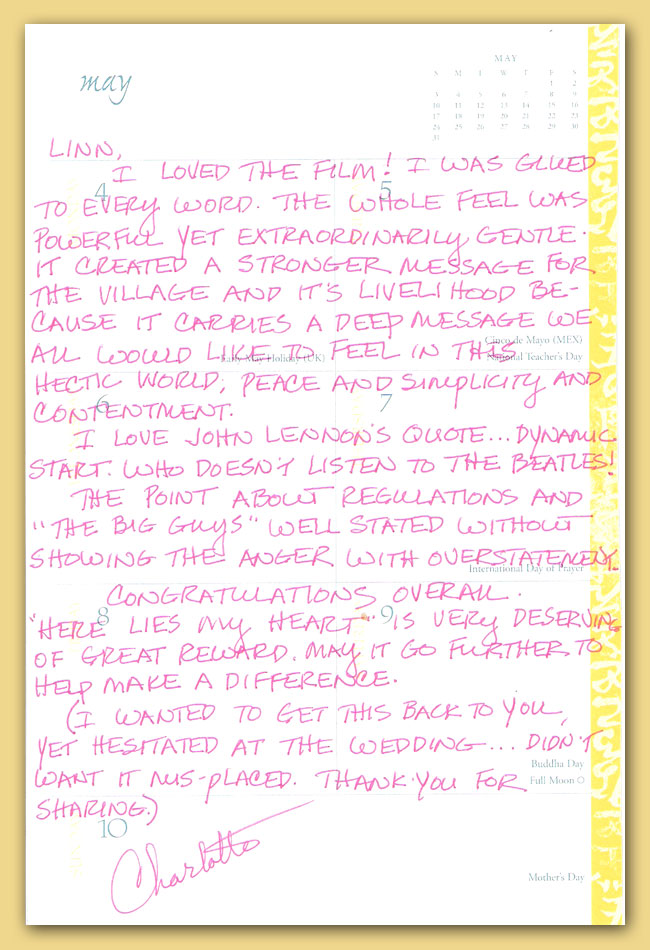 may
MAY
S M T W T F S
1 2
3 4 5 6 7 8 9
10 11 12 13 14 15 16
17 18 19 20 21 22 23
24 25 26 27 28 29 30
31
LINN,
4
5
I LOVED THE FILM! I WAS GLUED
TO EVERY WORD. THE WHOLE FEEL WAS
POWERFUL YET EXTRAORDINARILY GENTLE.
IT CREATED A STRONGER MESSAGE FOR
THE VILLAGE AND IT'S LIVELIHOOD BE-
CAUSE IT CARRIES A DEEP MESSAGE WE
Cinco de Mayo (MEX)
ALL WOULD LIKE TO FEEL IN THIS
Early May Holiday (UK)
National Teacher's Day
HECTIC WORLD; PEACE AND SIMPLICITY AND
6
7
CONTENTMENT.
I LOVE JOHN LENNON'S QUOTE... DYNAMIC
START. WHO DOESN'T LISTEN TO THE BEATLES!
THE POINT ABOUT REGULATIONS AND
"THE BIG GUYS" WELL STATED WITHOUT
SHOWING THE ANGER WITH OVERSTATEMENT.
International Day of Prayer
CONGRATULATIONS OVERALL.
8
9
"HERE LIES MY HEART" IS VERY DESERVING
OF GREAT REWARD. MAY IT GO FURTHER TO
HELP MAKE A DIFFERENCE.
(I WANTED TO GET THIS BACK TO YOU,
YET HESITATED AT THE WEDDING... DIDN'T
Buddha Day
WANT IT MIS-PLACED. THANK YOU FOR
Full Moon
SHARING.)
10
Charlotte
Mother's Day